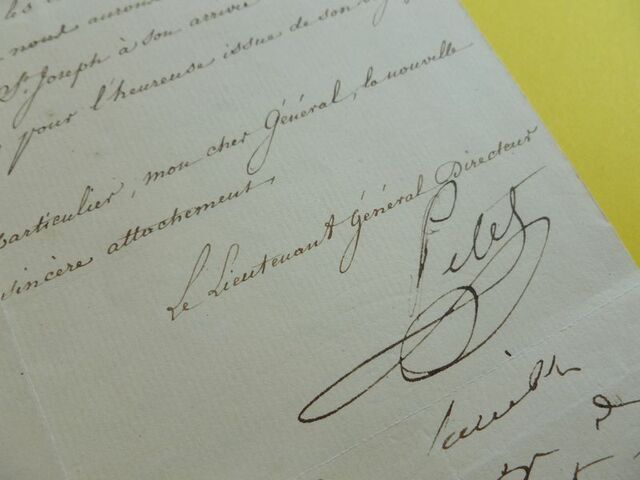 nous aurons
St. Joseph à son arrivée
pour l'heureuse issue de son
particulier, mon cher Général, la nouvelle
sincère attachement,
Le Lieutenant Général Directeur
Pelet